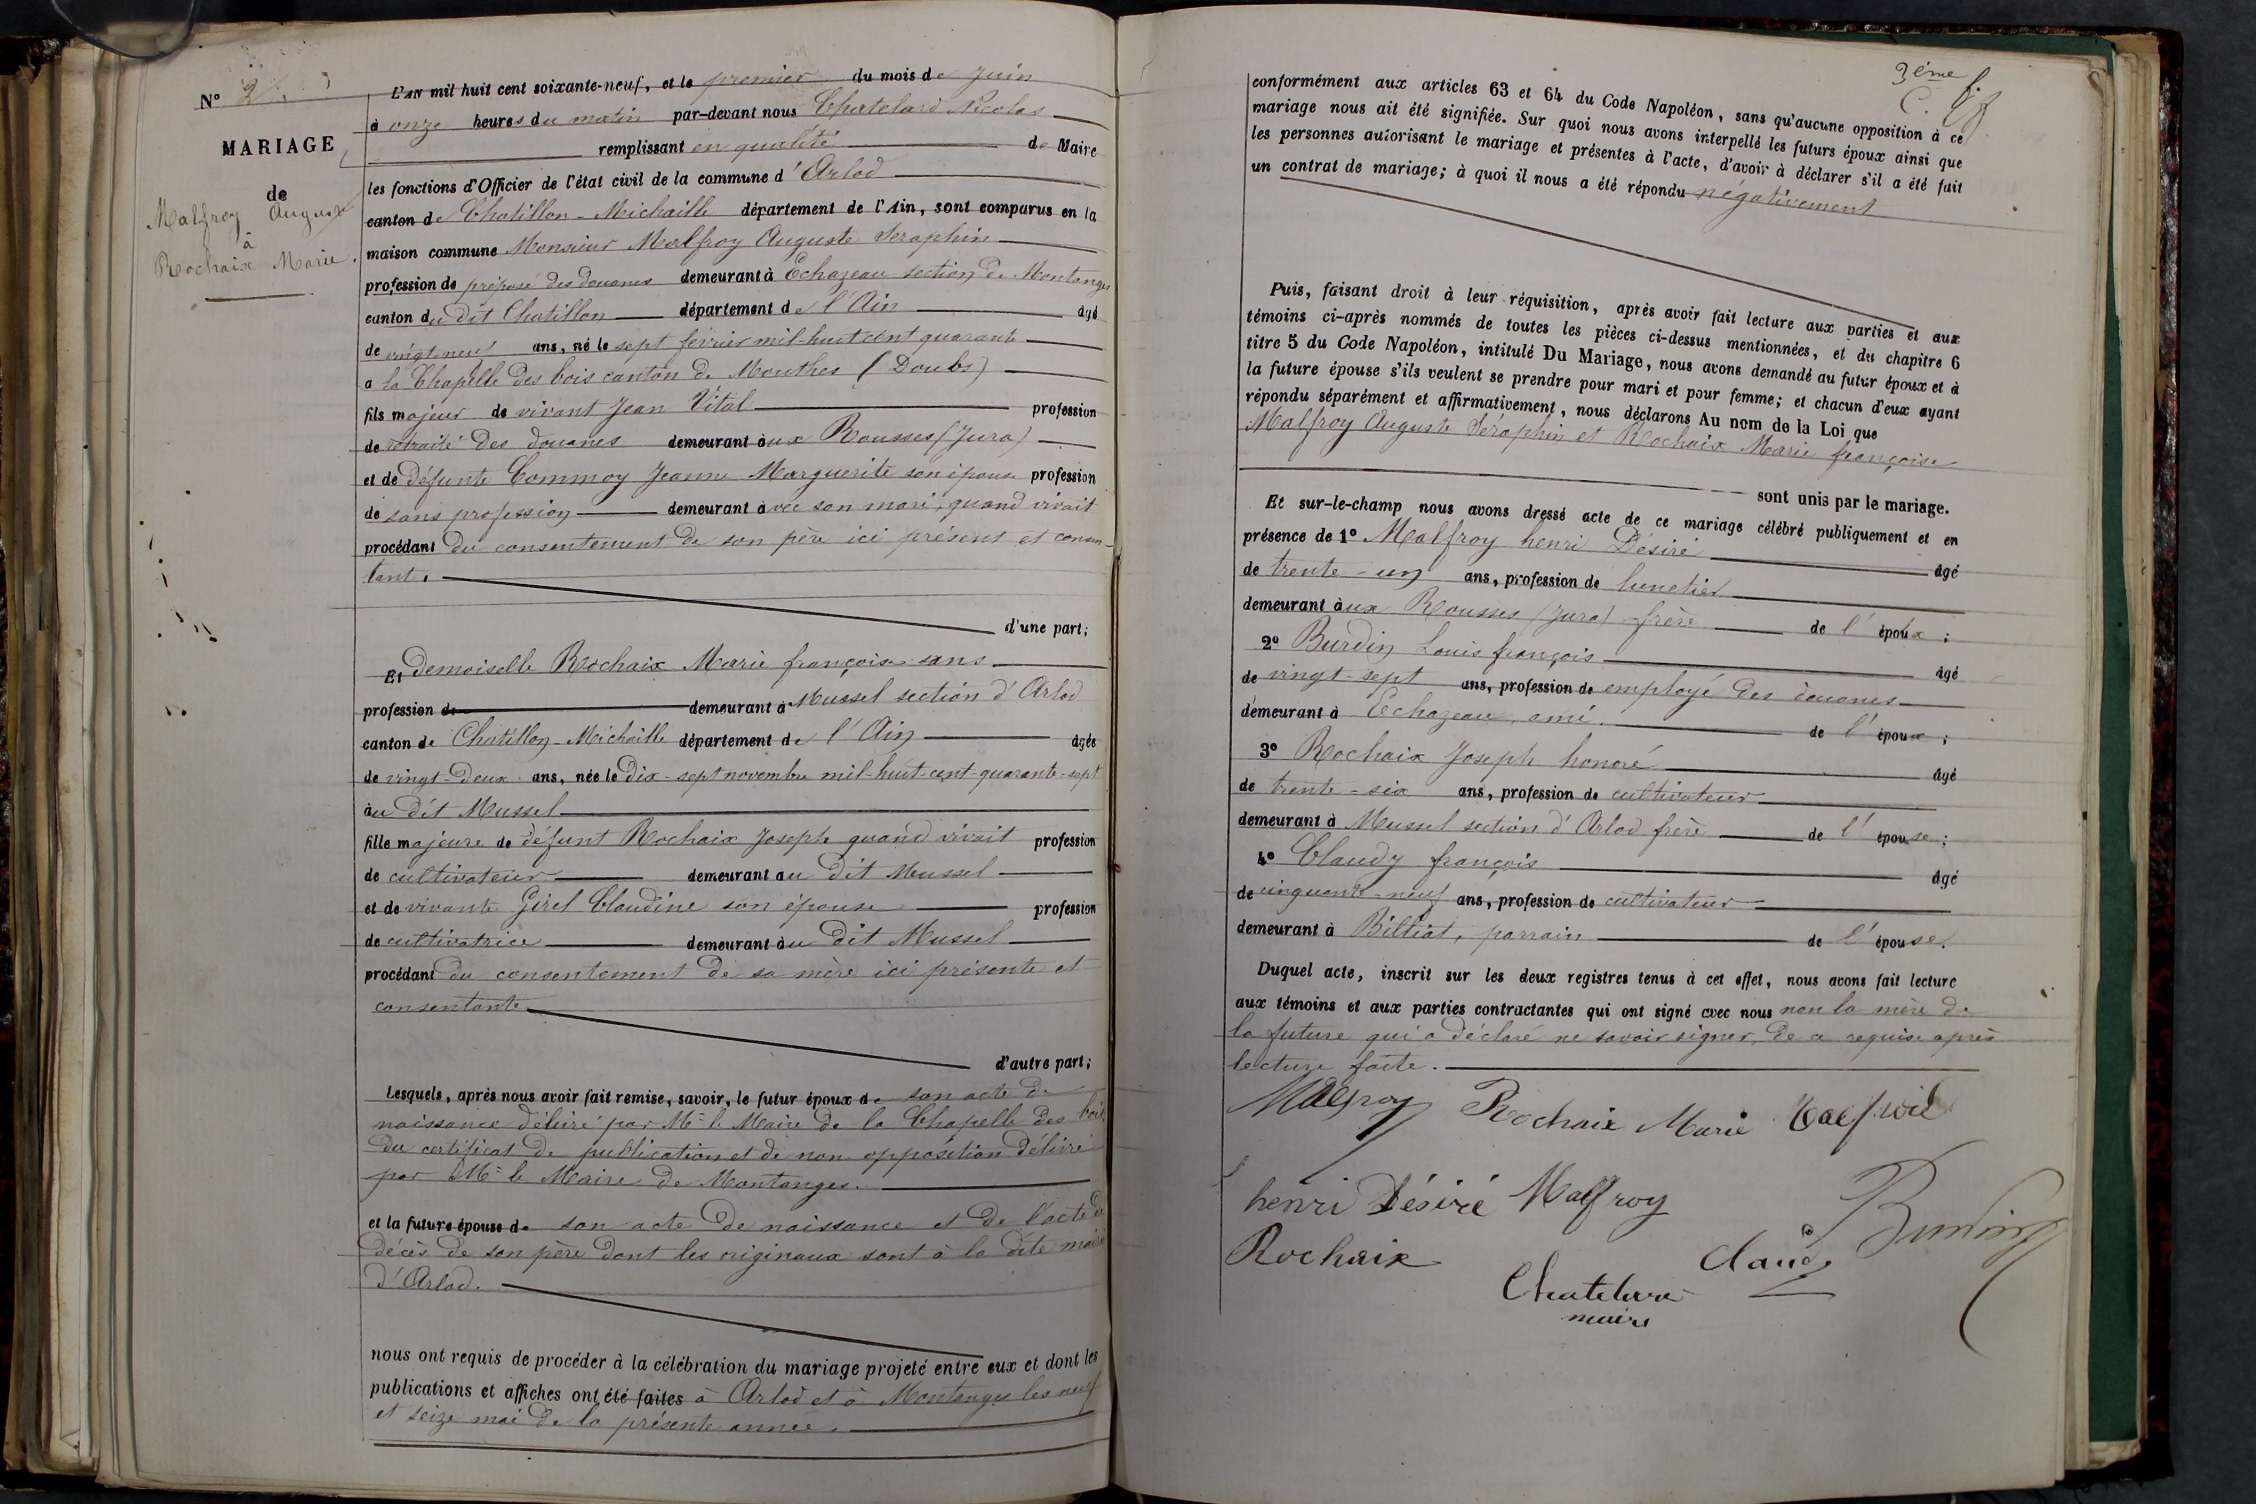 N° 2
MARIAGE
de
Malfroy Auguste
à
Rochaix Marie.
L'AN mil huit cent soixante-neuf, et le premier du mois de Juin
à onze heures du matin par-devant nous Chatelard Nicolas
remplissant en qualité de Maire
les fonctions d'Officier de l'état civil de la commune d'Arlod
canton de Chatillon-Michaille département de l'Ain, sont comparus en la
maison commune Monsieur Malfroy Auguste Seraphin
profession de préposé des douanes demeurant à Echazeau section de Montanges
canton du dit Chatillon département de l'Ain âgé
de vingt-neuf ans, né le sept février mil-huit cent quarante
a la Chapelle des bois canton de Mouthes (Doubs)
fils majeur de vivant Jean Vital profession
de retraité des douanes demeurant aux Rousses (Jura)
et de défunte Commoy Jeanne Marguerite son épouse profession
de sans profession demeurant avec son mari, quand vivait
procédant du consentement de son père ici présent et consen-
tant.
d'une part;
Et demoiselle Rochaix Marie françoise sans
profession de demeurant à Mussel section d'Arlod
canton de Chatillon-Michaille département de l'Ain âgée
de vingt-deux ans, née le Dix-sept novembre mil-huit-cent-quarante-sept
au dit Mussel
fille majeure de défunt Rochaix Joseph quand vivait profession
de cultivateur demeurant au dit Mussel
et de vivante Girel Claudine son épouse profession
de cultivatrice demeurant au dit Mussel
procédant du consentement de sa mère ici présente et
consentante
d'autre part;
Lesquels, après nous avoir fait remise, savoir, le futur époux de son acte de
naissance délivré par Mr le Maire de la Chapelle des bois
du certificat de publication et de non opposition délivré
par Mr le Maire de Montanges.
et la future épouse de son acte de naissance et de l'acte de
décès de son père dont les originaux sont à la dite mairie
d'Arlod.
nous ont requis de procéder à la célébration du mariage projeté entre eux et dont les
publications et affiches ont été faites à Arlod et à Montanges les neuf
et seize mai de la présente année.
3éme
C.
conformément aux articles 63 et 64 du Code Napoléon, sans qu'aucune opposition à ce
mariage nous ait été signifiée. Sur quoi nous avons interpellé les futurs époux ainsi que
les personnes autorisant le mariage et présentes à l'acte, d'avoir à déclarer s'il a été fait
un contrat de mariage; à quoi il nous a été répondu négativement
Puis, faisant droit à leur réquisition, après avoir fait lecture aux parties et aux
témoins ci-après nommés de toutes les pièces ci-dessus mentionnées, et du chapitre 6
titre 5 du Code Napoléon, intitulé Du Mariage, nous avons demandé au futur époux et à
la future épouse s'ils veulent se prendre pour mari et pour femme; et chacun d'eux ayant
répondu séparément et affirmativement, nous déclarons Au nom de la Loi que
Malfroy Auguste Séraphin et Rochaix Marie françoise
sont unis par le mariage.
Et sur-le-champ nous avons dressé acte de ce mariage célébré publiquement et en
présence de 1° Malfroy henri Désiré âgé
de trente-un ans, profession de lunetier
demeurant aux Rousses (Jura) frère de l'époux;
2° Burdin Louis françois âgé
de vingt-sept ans, profession de employé des douanes
demeurant à Echazeau, ami de l'époux;
3° Rochaix Joseph honoré âgé
de trente-six ans, profession de cultivateur
demeurant à Mussel section d'Arlod frère de l'épouse;
4° Claudy françois âgé
de cinquante-neuf ans, profession de cultivateur
demeurant à Billiat, parrain de l'épouse.
Duquel acte, inscrit sur les deux registres tenus à cet effet, nous avons fait lecture
aux témoins et aux parties contractantes qui ont signé avec nous non la mère de
la future qui a déclaré ne savoir signer, de ce requise après
lecture faite.
Malfroy Rochaix Marie Malfroit
henri Désiré Malfroy Burdin
Rochaix Claudy
Chatelard
maire